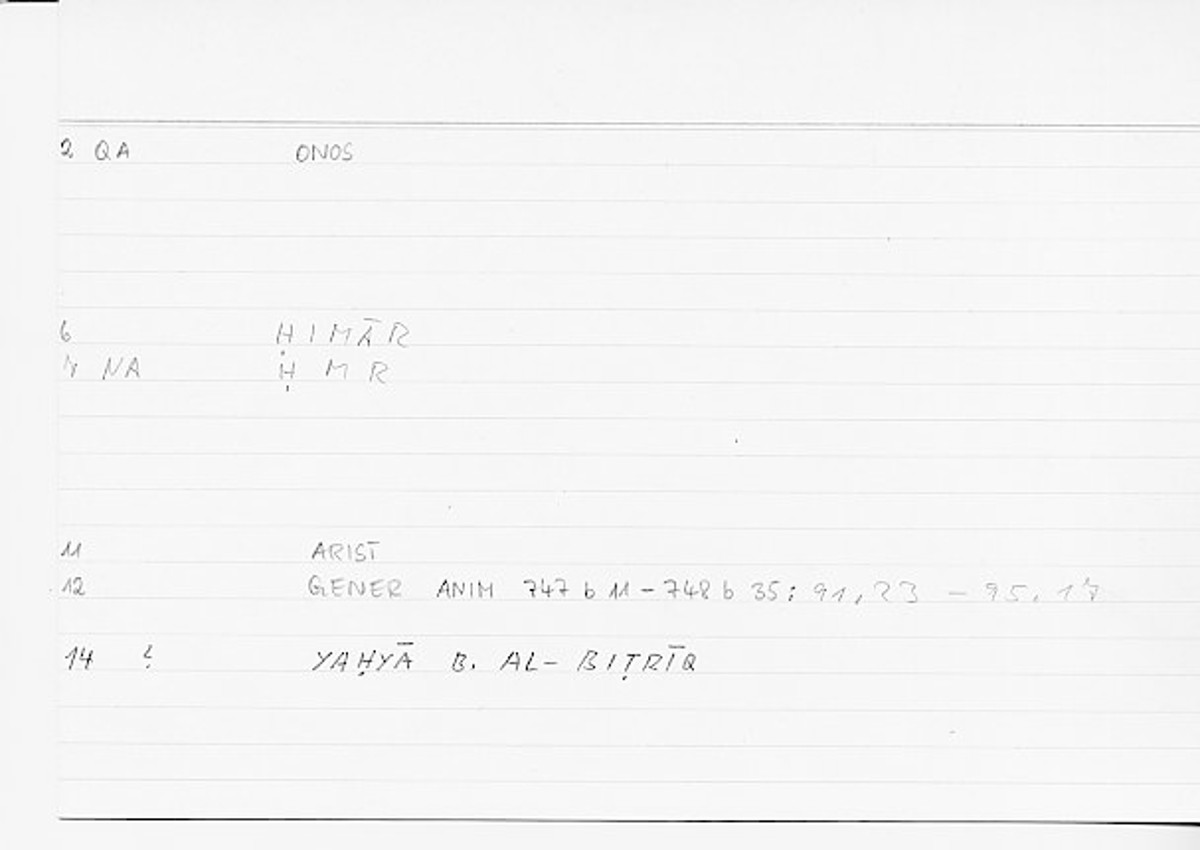 2 QA ONOS
6 ḤIMĀR
7 NA Ḥ M R
11 ARIST
12 GENER ANIM 747 b 11 - 748 b 35 : 91,23 - 95,17
14 YAḤYĀ B. AL- BIṬRĪQ